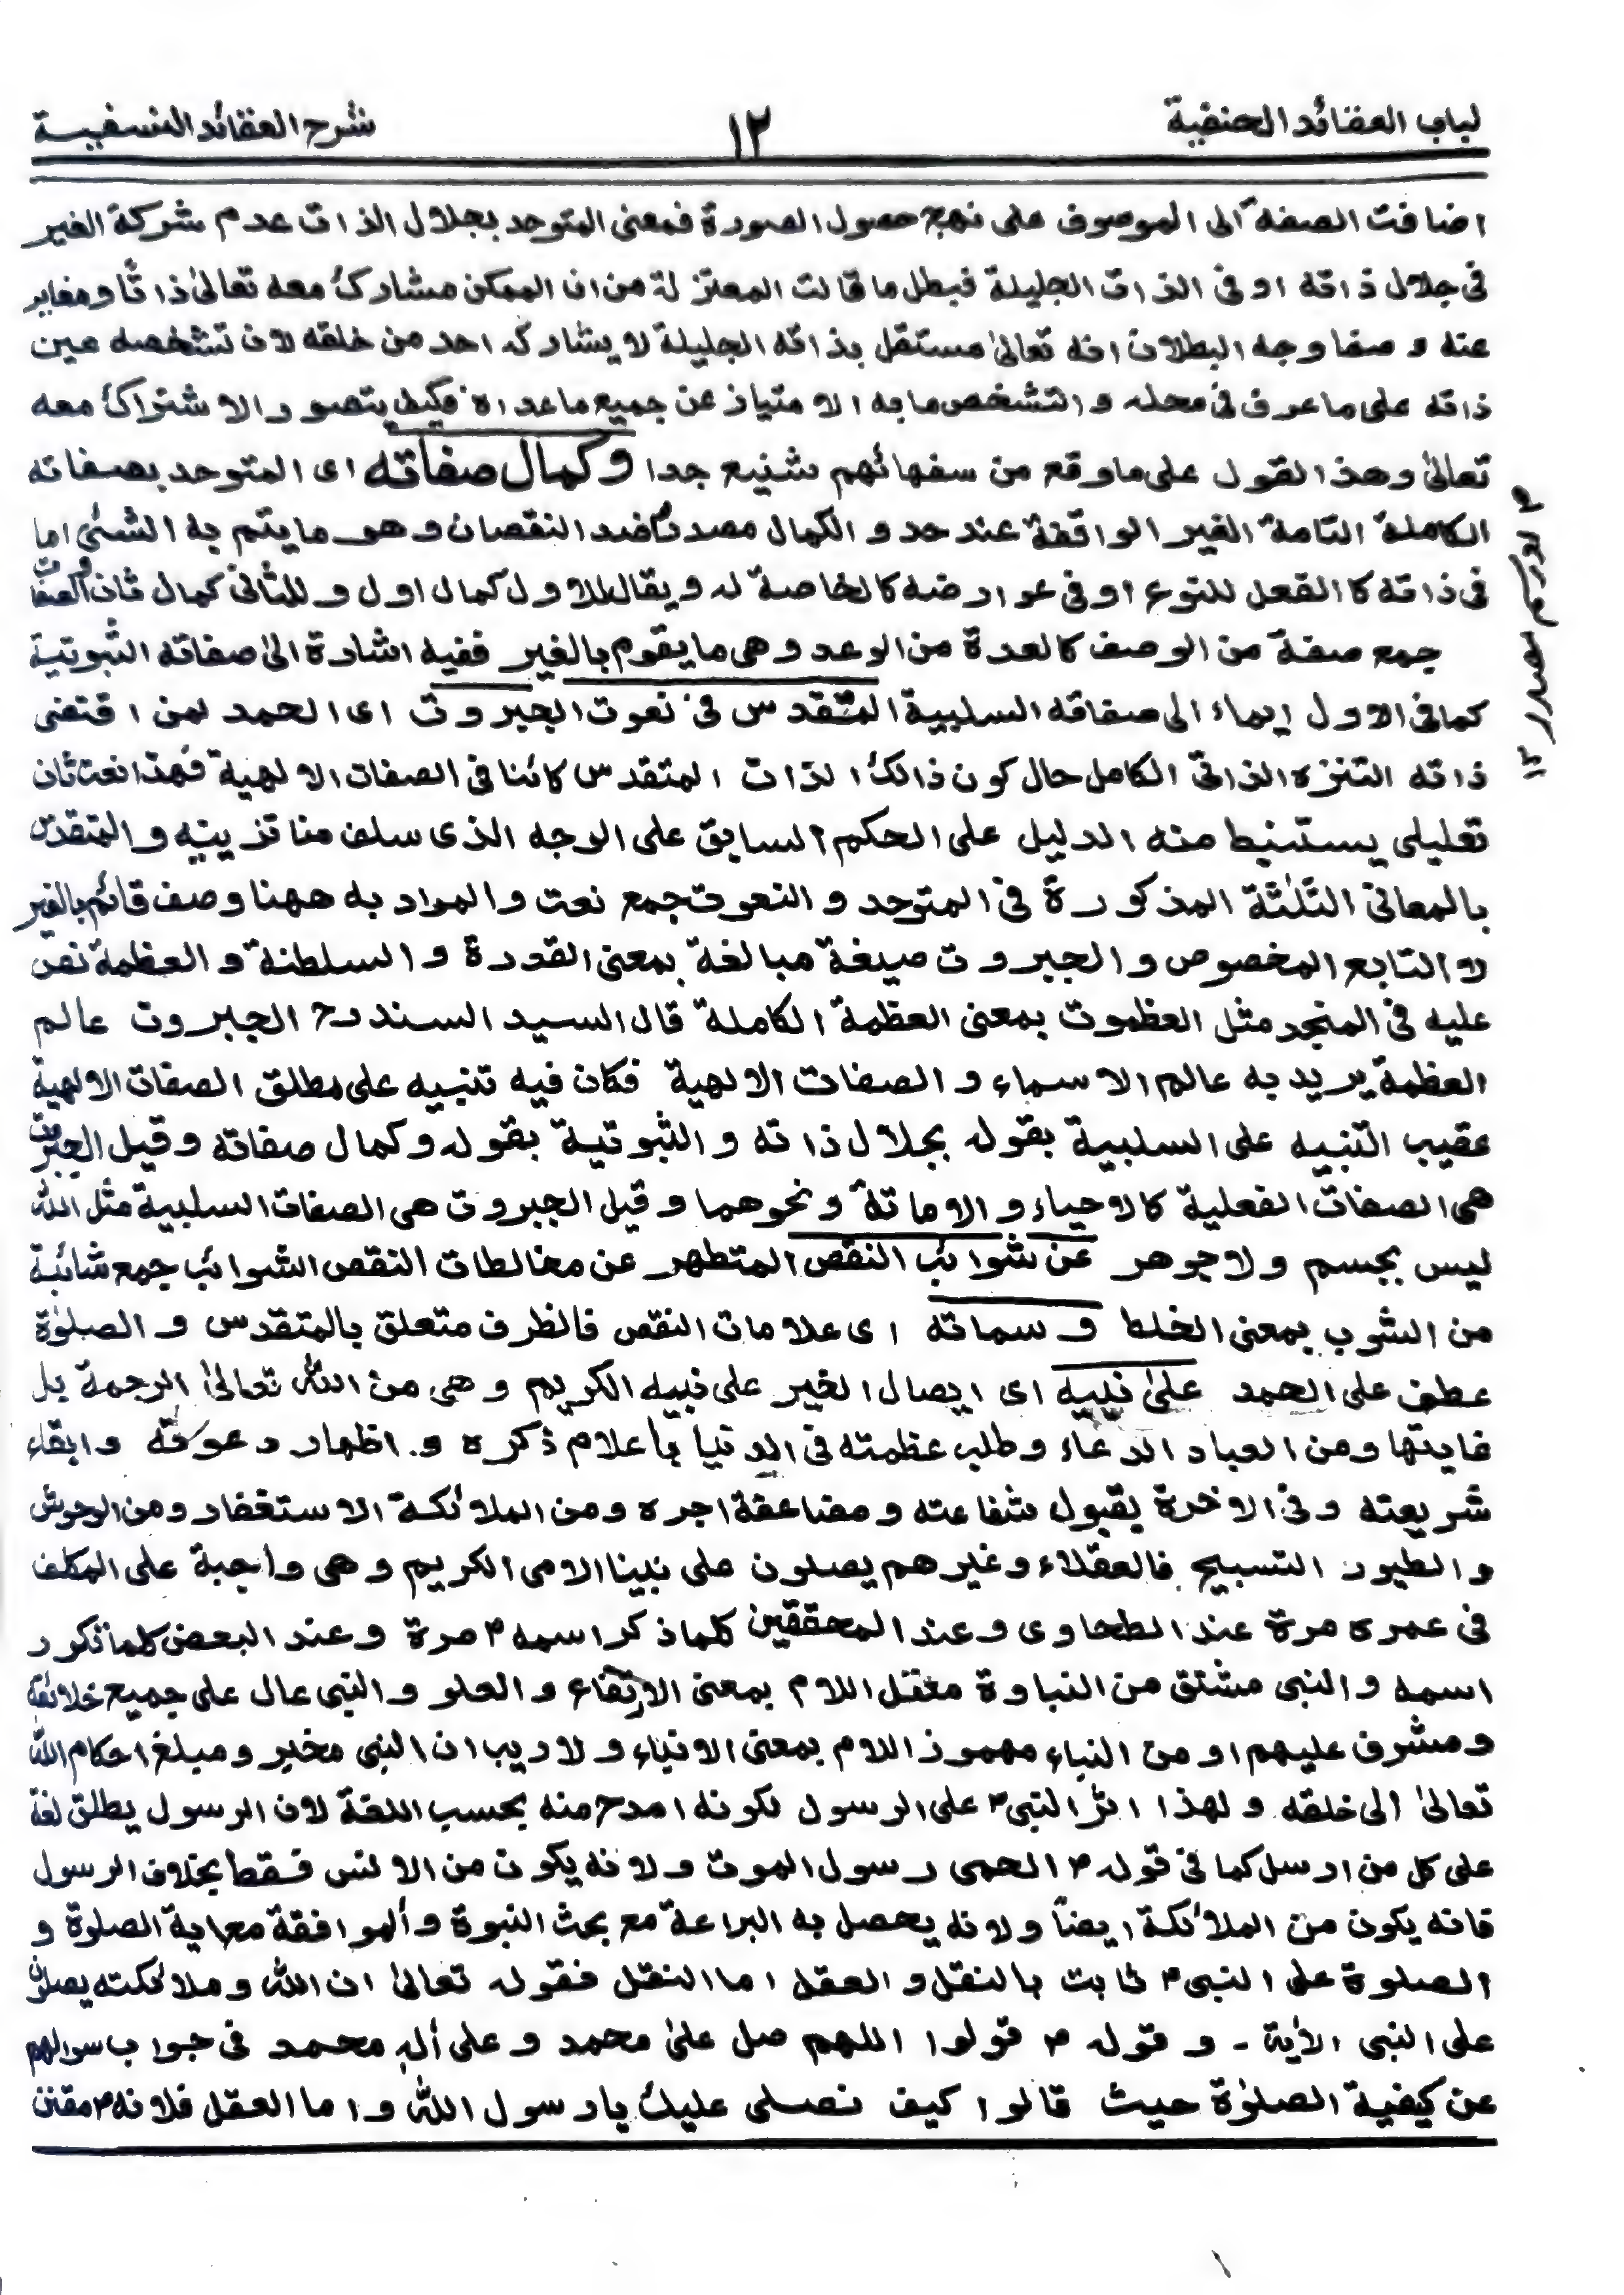 لباب العقائد الحنفية ١٢ شرح العقائد النسفيية
اضافت الصفة الى الموصوف على نهج حصول الصورة فمعنى المتوحد بجلال الذات عدم شركة الغير
فى جلال ذاته او فى الذات الجليلة فبطل ما قالت المعتزلة من ان الممكن مشارك معه تعالىٰ ذاتًا ومغاير
عنه و صفا وجه البطلان انه تعالىٰ مستقل بذاته الجليلة لا يشاركه احد من خلقه لان تشخصه عين
ذاته على ما عرف فى محله و التشخص ما به الا متياز عن جميع ما عداه فكيف يتصور الا شتراك معه
تعالىٰ وهذا القول على ما وقع من سفهائهم شنيع جدا وكمال صفاته اى المتوحد بصفاته
الكاملة التامة الغير الواقفة عند حد و الكمال مصدر ضد النقصان وهو ما يتم به الشئى اما
فى ذاته كا الفعل للنوع او فى عوارضه كالخاصة له ويقال للاول كمال اول و للثانى كمال ثان والصفات
جمع صفة من الوصف كالعدة من الوعد وهى ما يقوم بالغير ففيه اشارة الىٰ صفاته الثبوتية
كما فى الاول ايماء الى صفاته السلبية المتقدس فى نعوت الجبروت اى الحمد لمن اقتضى
ذاته التنزه الذاتى الكامل حال كون ذالك الذات المتقدس كائنا فى الصفات الالهية فهذا نعت ثان
تعليلى يستنبط منه الدليل على الحكم السابق على الوجه الذى سلف منا تزيينه و المتقدس
بالمعانى الثلثة المذكورة فى المتوحد و النعوت جمع نعت والمراد به ههنا وصف قائم بالغير
لا التابع المخصوص و الجبروت صيغة مبالغة بمعنى القدرة و السلطنة و العظمة نص
عليه فى المنجد مثل العظموت بمعنى العظمة الكاملة قال السيد السند رح الجبروت عالم
العظمة يريد به عالم الاسماء و الصفات الالهية فكان فيه تنبيه على مطلق الصفات الالهية
عقيب التنبيه على السلبية بقوله بجلال ذاته و الثبوتية بقوله وكمال صفاته وقيل الجبروت
هى الصفات الفعلية كالاحياء و الاماتة و نحوهما وقيل الجبروت هى الصفات السلبية مثل الله
ليس بجسم ولا جوهر عن شوائب النقص المتطهر عن مخالطات النقص الشوائب جمع شائبة
من الشوب بمعنى الخلط و سماته اى علامات النقص فالظرف متعلق بالمتقدس و الصلوٰة
عطف على الحمد علىٰ نبيه اى ايصال الخير على نبيه الكريم وهى من الله تعالىٰ الرحمة بل
غايتها ومن العباد الدعاء وطلب عظمته فى الدنيا بأعلام ذكره و اظهار دعوته وابقاء
شريعته وفى الاخرة بقبول شفاعته و مضاعفة اجره ومن الملائكة الاستغفار ومن الوحوش
و الطيور التسبيح فالعقلاء وغيرهم يصلون على نبينا الامى الكريم وهى واجبة على المكلف
فى عمره مرة عند الطحاوى وعند المحققين كلما ذكر اسمه ؐ مرة وعند البعض كلما ذكور
اسمه و النبى مشتق من النباوة معتل اللام بمعنى الارتفاع و العلو و النبى عال على جميع خلائقه
ومشرف عليهم او من النباء مهموز اللام بمعنى الانباء ولا ريب ان النبى مخبر ومبلغ احكام الله
تعالىٰ الى خلقه ولهذا اثر النبى ؐ على الرسول لكونه امدح منه بحسب اللغة لان الرسول يطلق لغة
على كل من ارسل كما فى قوله ؐ الحمى رسول الموت ولانه يكون من الانس فقط بخلاف الرسول
فانه يكون من الملائكة ايضاً ولانه يحصل به البراعة مع بحث النبوة والموافقة مع اية الصلوة و
الصلوة على النبى ؐ ثابت بالنقل و العقل اما النقل فقوله تعالىٰ ان الله وملائكته يصلون
على النبى الاٰية - و قوله ؐ قولوا اللهم صل علىٰ محمد و على أل محمد فى جواب سوالهم
عن كيفية الصلوٰة حيث قالوا كيف نصلى عليك يا رسول الله واما العقل فلانه ؐ مقنن